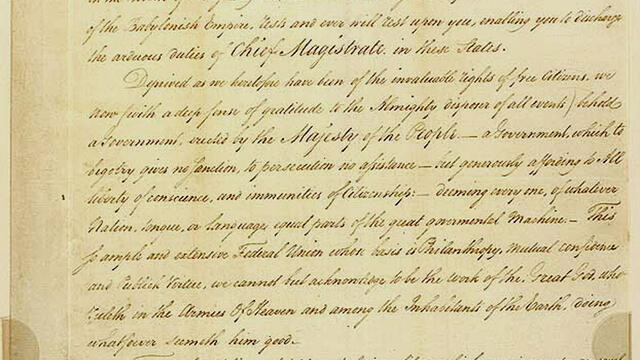 of the Babylonish Empire, rests and ever will rest upon you, enabling you to discharge
the arduous duties of Chief Magistrate in these States.
Deprived as we heretofore have been of the invaluable rights of free Citizens, we
now (with a deep sense of gratitude to the Almighty disposer of all events) behold
a Government, erected by the Majesty of the People — a Government, which to
bigotry gives no sanction, to persecution no assistance — but generously affording to All
liberty of conscience, and immunities of Citizenship: — deeming every one, of whatever
Nation, tongue, or language, equal parts of the great govermental Machine: — This
so ample and extensive Federal Union whose basis is Philanthropy, mutual confidence
and Publick Virtue, we cannot but acknowledge to be the work of the Great God, who
ruleth in the Armies Of Heaven and among the Inhabitants of the Earth, doing
whatsoever seemeth him good.